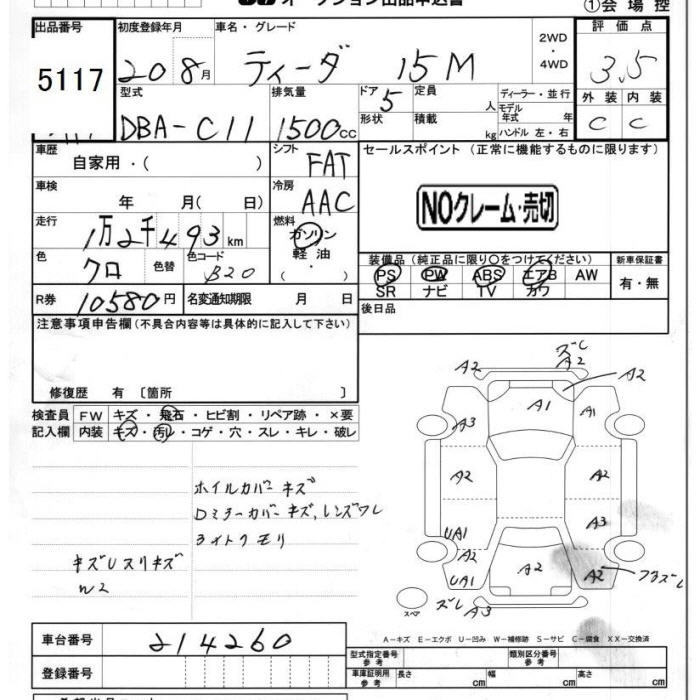 オークション出品申込書 ①会場控
出品番号 初度登録年月 車名・グレード 2WD・4WD 評価点
5117 20 8月 ティーダ 15M 3.5
型式 排気量 ドア 定員 ディーラー・並行 外装 内装
DBA-C11 1500cc 5 人 モデル年式 年 C C
形状 積載 kg ハンドル 左・右
車歴 シフト セールスポイント (正常に機能するものに限ります)
自家用・( ) FAT
車検 冷房
年 月( 日) AAC NOクレーム・売切
走行 燃料
1万2千493km ガソリン
色 色替 色コード 軽油 装備品(純正品に限り○をつけてください) 新車保証書
クロ B20 ・( ) PS PW ABS エアB AW 有・無
SR ナビ TV カワ
R券 10580円 名変通知期限 月 日 後日品
注意事項申告欄(不具合内容等は具体的に記入して下さい)
修復歴 有〔箇所 〕
検査員 FW キズ・飛石・ヒビ割・リペア跡・×要
記入欄 内装 キズ・汚レ・コゲ・穴・スレ・キレ・破レ
ズレ
A2 A2 A2
A1 A1
A3
A2 A2
A3
UA1
A2
UA1 A2 A2
ズレ A3
スペア
ホイルカバーキズ
Dミラーカバーキズ、レンズワレ
ライトクモリ
W2
A-キズ E-エクボ U-凹み W-補修跡 S-サビ C-腐食 XX-交換済
車台番号 214260
登録番号
型式指定番号 参考 類別区分番号 参考
車庫証明用 参考 長さ cm 幅 cm 高さ cm